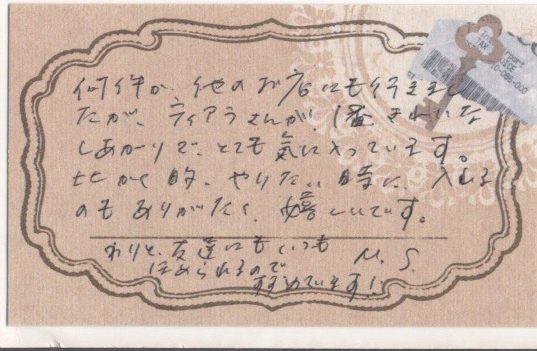 何件か、他のお店にも行きまし
たが、ティアラさんが、1番きれいな
しあがりで、とても気に入っています。
比かく的、やりたい時に、入れる
のもありがたく、嬉しいです。
わりと、友達にもいつも
ほめられるので
すすめています!
M.S.